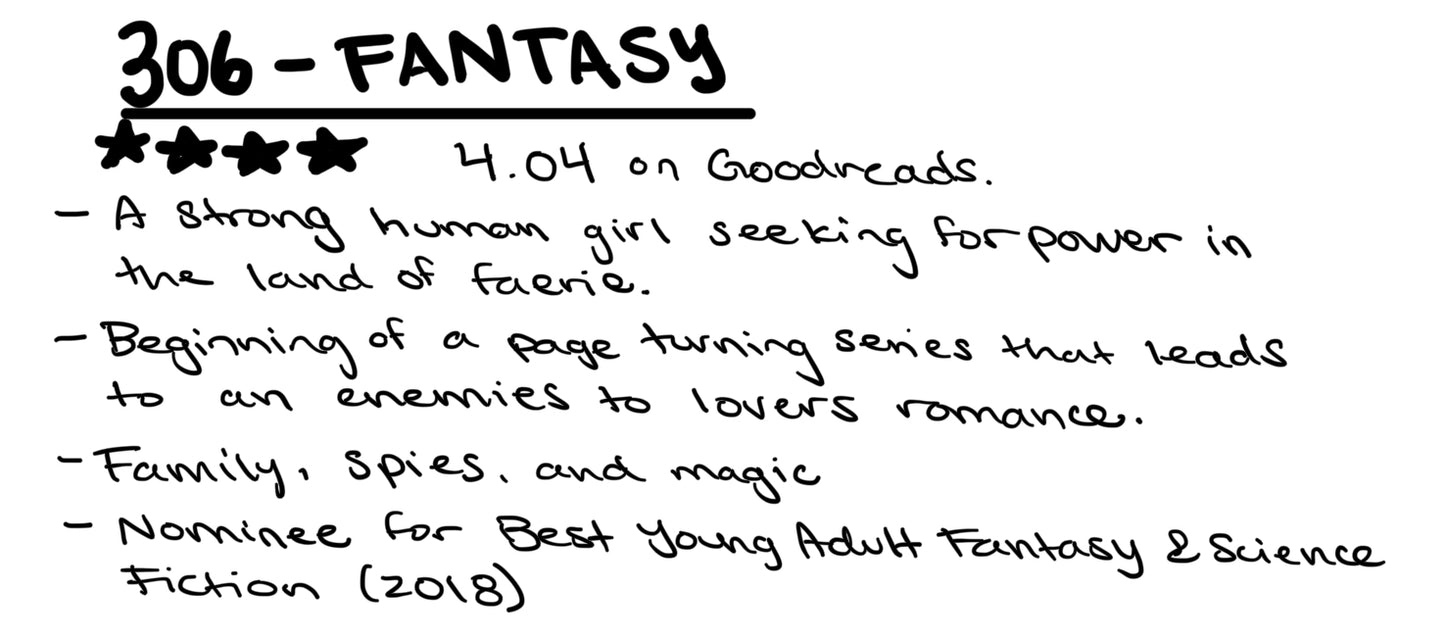 306 - FANTASY
★★★★ 4.04 on Goodreads.
- A strong human girl seeking for power in
the land of faerie.
- Beginning of a page turning series that leads
to an enemies to lovers romance.
- Family, spies, and magic
- Nominee for Best Young Adult Fantasy & Science
Fiction (2018)